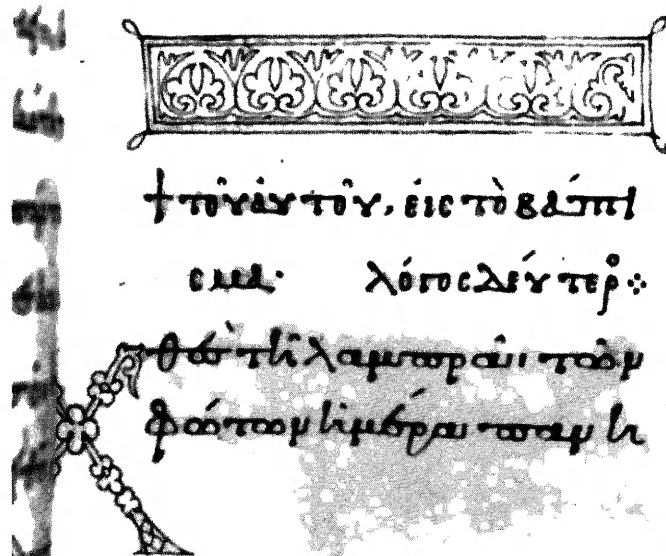 + τοῦ αὐτοῦ, εἰς τὸ βάπτι
σμα· λόγος δεύτερο ⁘
Χθὲς τῆι λαμπρᾶι τῶν
φώτων ἡμέραι πανη